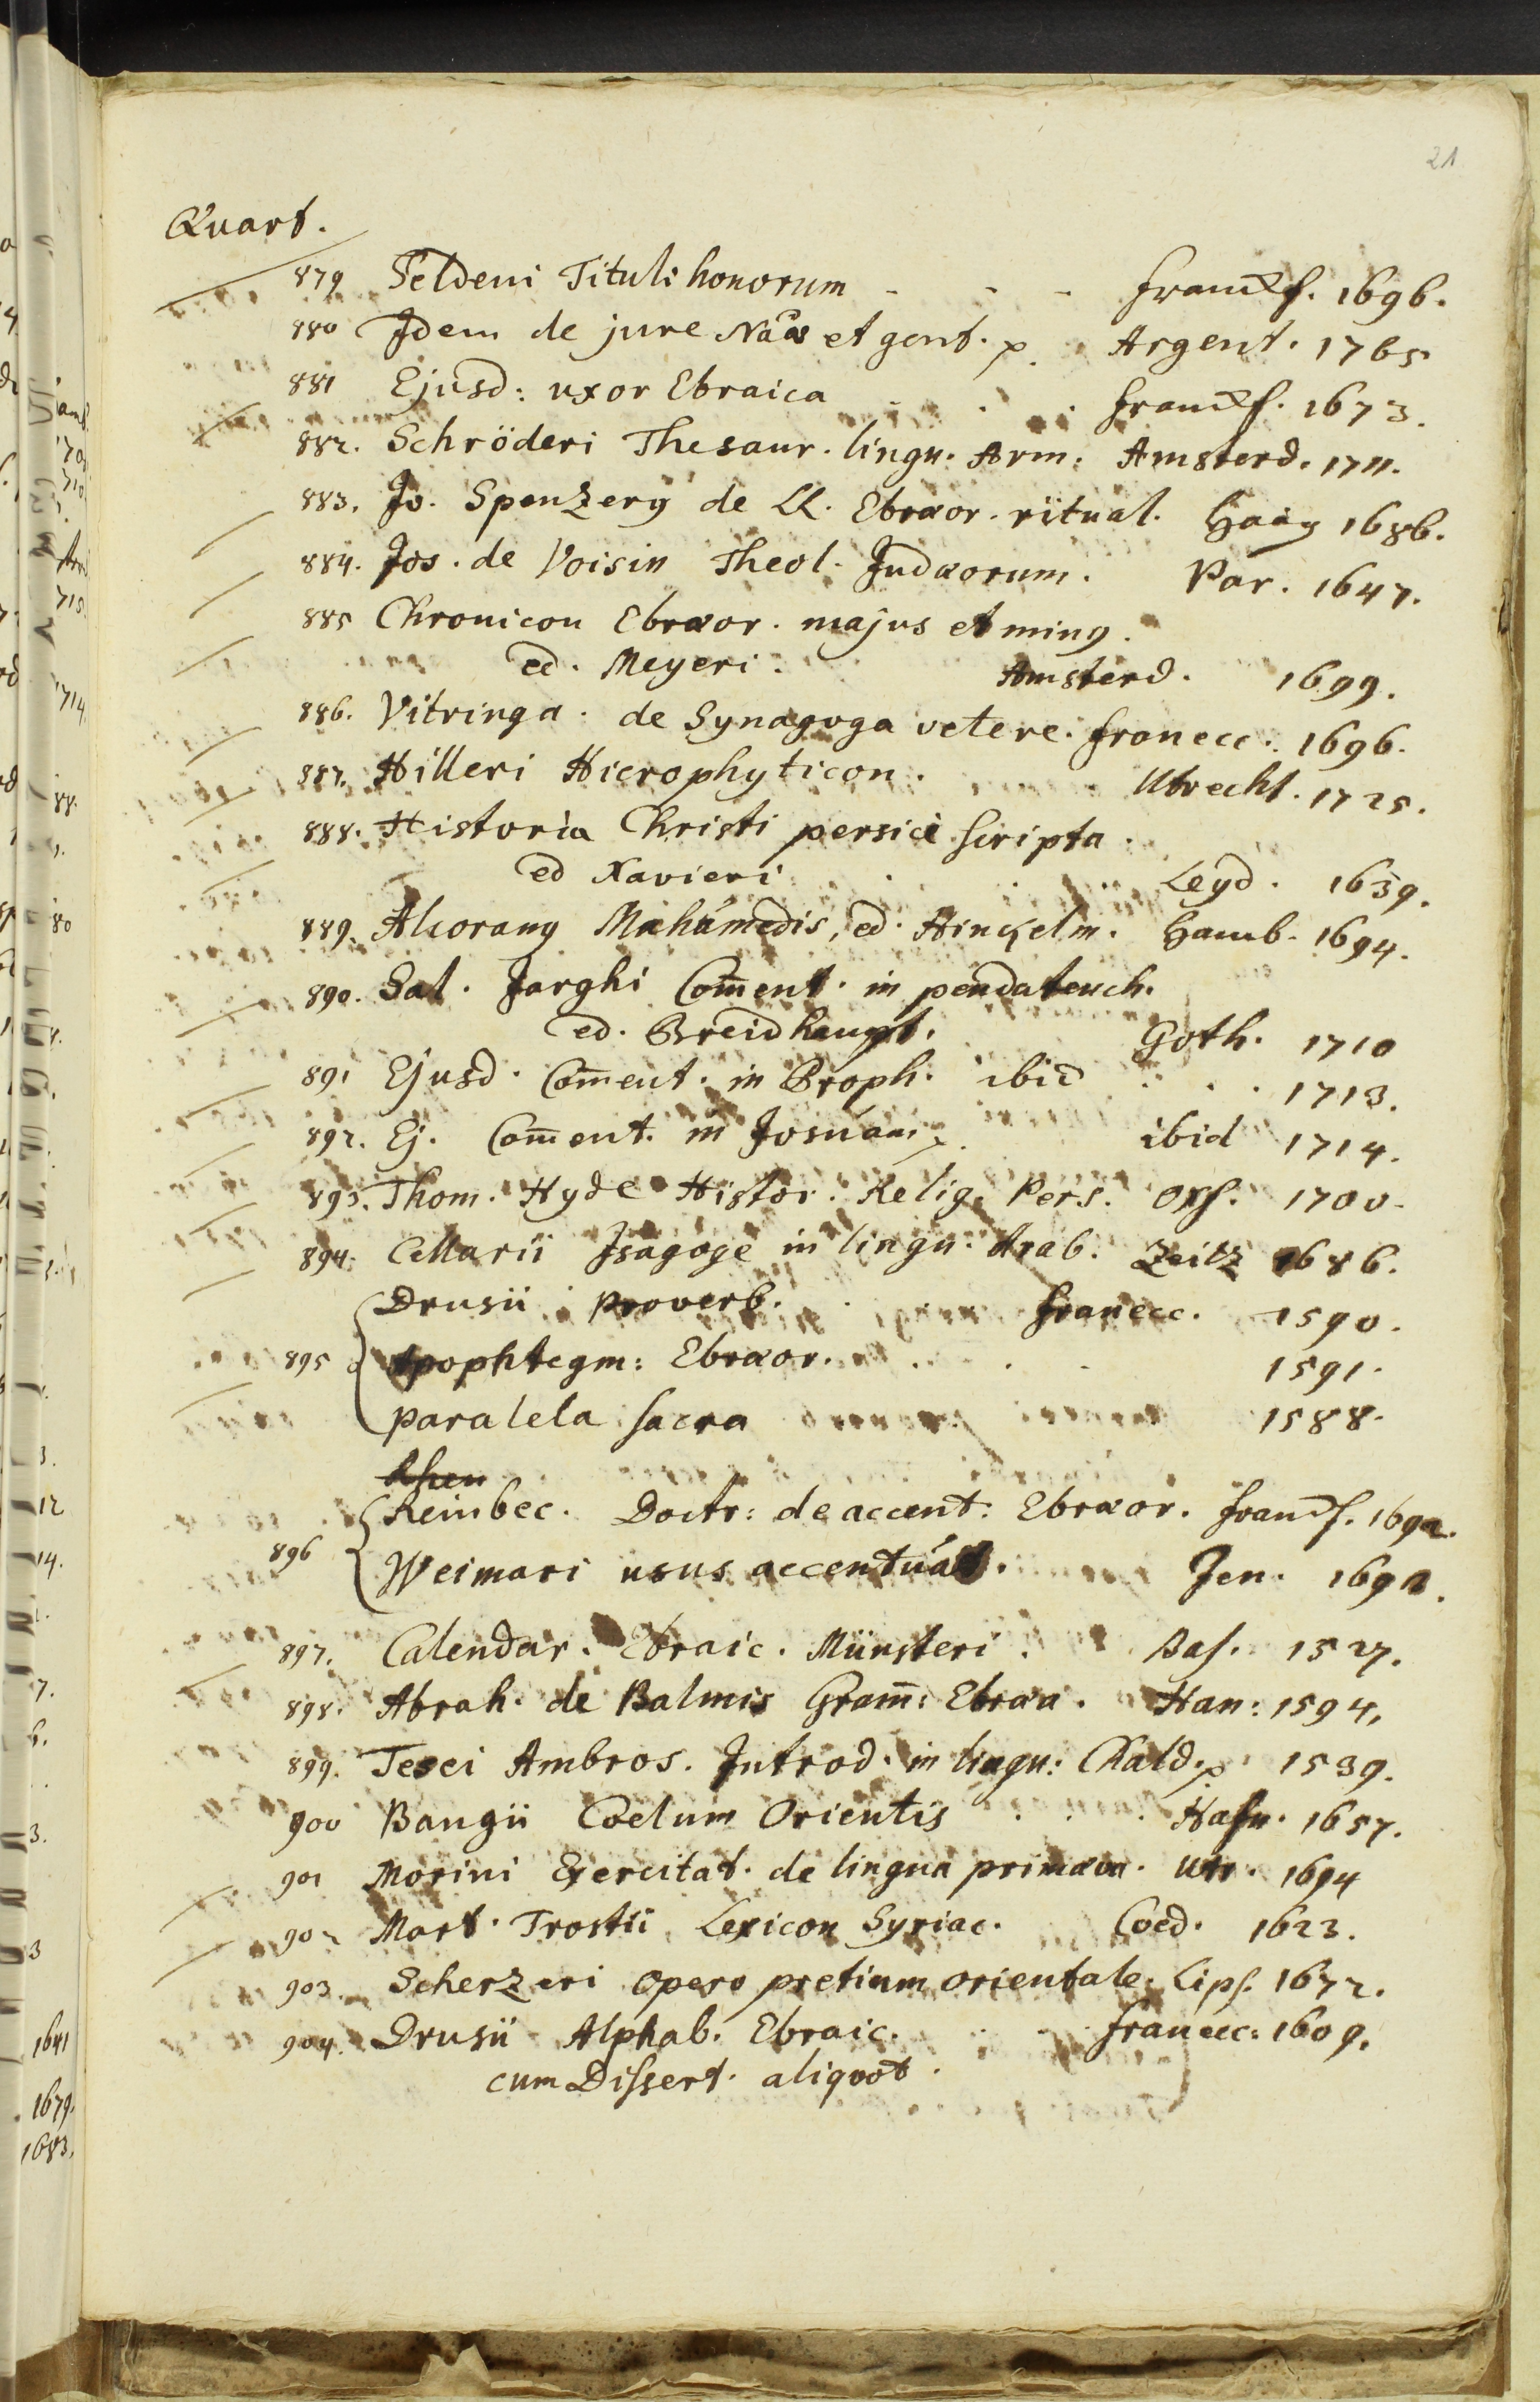 21
Quart.
879 Seldeni Tituli honorum - - - Franckf. 1696.
880 Idem de jure Naāe et gent. p. Argent. 1765
881 Ejusd: uxor Ebraica . . . Franckf. 1673.
882. Schröderi Thesaur. lingu. Arm: Amsterd. 1711.
883. Jo. Spenzery de LL. Ebræor. ritual. Haag 1686.
884. Jos. de Voisin Theol. Judæorum. Par. 1647.
885 Chronicon Ebræor. majus et ming.
ed. Meyeri. Amsterd. 1699.
886. Vitringa. de Synagoga vetere. Franecc. 1696.
887. Hilleri Hierophyticon. Utrecht. 1725.
888. Historia Christi persice scripta.
ed Xavieri . . . Leyd. 1639.
889. Alcorany Mahamedis, ed. Hinckelm. Hamb. 1694.
890. Sal. Jarghi Com̄ent. in pendateuch.
ed. Breidhaupt. Goth. 1710
891 Ejusd. Com̄ent. in Proph. ibid . . . 1713.
892. Ej. Com̄ent. in Josuam p. ibid 1714.
893. Thom. Hyde Histor. Relig. Pers. Oxf. 1700.
894. Cellarii Isagoge in lingu. Arab. Zeitz 1686.
Drusii Proverb. . . . Franecc. 1590.
895 Apophtegm: Ebræor. . . . 1591.
paralela sacra 1588.
Reinbec. Doctr: de accent: Ebræor. Franckf. 1692.
896
Weimari usus accentuat. Jen. 1692.
897. Calendar. Ebraic. Münsteri. Bas. 1527.
898. Abrah. de Balmis Gram̄: Ebræa. Han: 1594.
899. Tesei Ambros. Introd. in lingu: Chald. p. 1539.
900 Bangii Coelum Orientis . . . Hafn. 1657.
901 Morini Exercitat. de lingua primæva. Utr. 1694
902 Mart. Trostii Lexicon Syriac. Coed. 1623.
903. Scherzeri operæ pretium orientale. Lips. 1672.
904. Drusii Alphab. Ebraic. . . . Franecc: 1609.
cum Dissert. aliquot.
1641
1679.
1683.